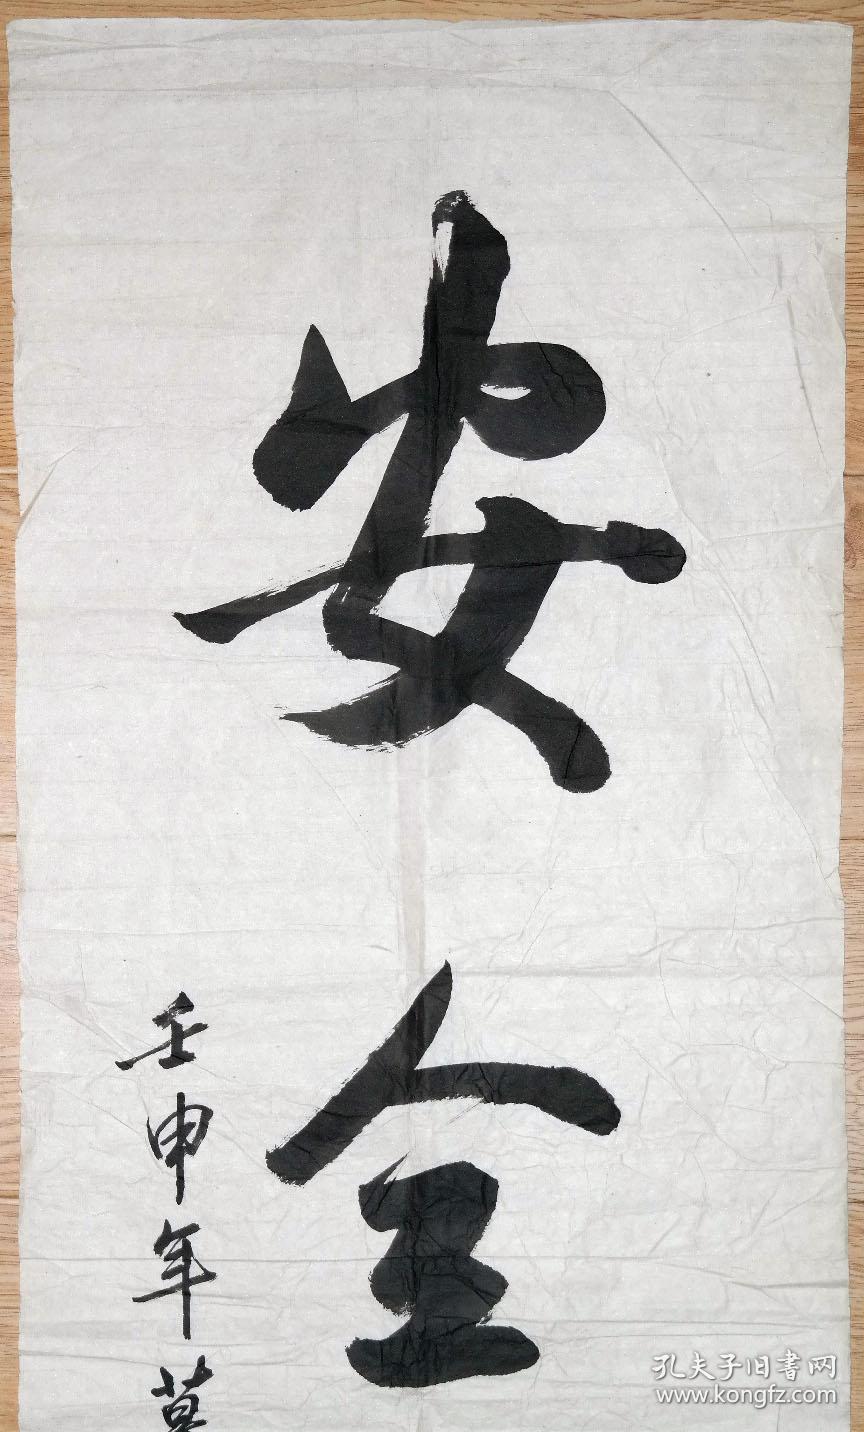 安全
壬申年
孔夫子旧書网
www.kongfz.com